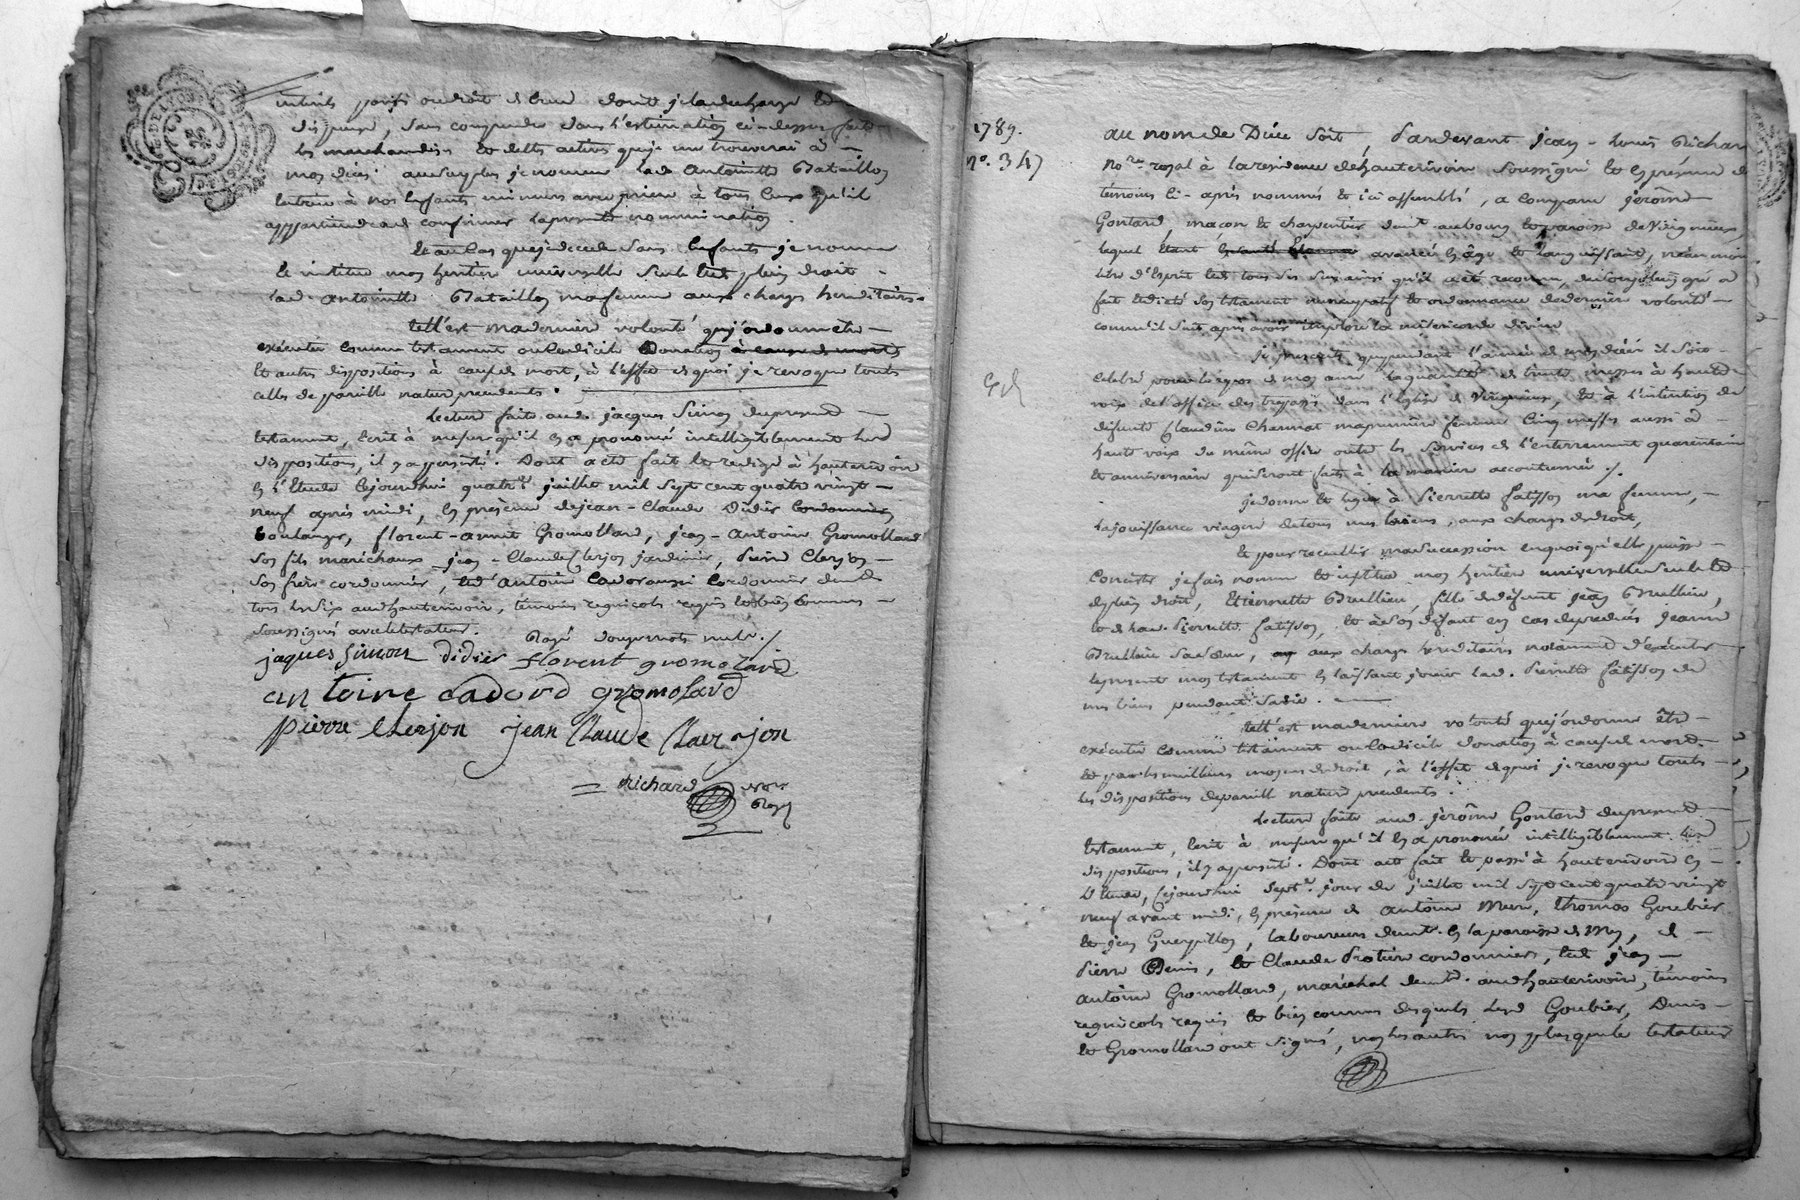 dispense, sans comprendre dans l'estimation ci-dessus faite
les marchandises et dettes actives qui se trouveront à
mon décès. au surplus je nomme lad. Antoinette Bataillon
tutrice à nos enfants mineurs avec prière à tous ceux qu'il
appartiendra de confirmer la presente nommination.
Et au cas que je decede sans Enfants je nomme
et institue mon heritier universelle seule et de plein droit
lad. antoinette Bataillon ma femme aux charges hereditaires.
tell'est ma derniere volonté que j'ordonne être
exécutée comme testament ou Codicile Donation à cause de mort
et autres dispositions à cause de mort, à l'effet de quoi je revoque toutes
celles de pareille nature precedentes.
Lecture faite aud. jacques Simon du present
testament, écrit à mesure qu'il en a prononcé intelligiblement les d.
dispositions, il y a persisté. Dont acte fait et redigé à hauterivoire
en l'Etude Cejourdhui quatre juillet mil sept cent quatre vingt
neuf après midi, en présence de jean-Claude Didier
boulanger, florent-annet Gromollard, jean-antoine Gromollard
son fils maréchaux jean-Claude Clerjon jardinier, pierre Clerjon
son frère cordonnier, et antoine Cadord aussi Cordonnier demt.
tous les six aud hauterivoire, témoins regnicoles requis et bien Connus
soussignés avec le testateur. Rayé douze mots nuls ./
jaques simon didier florent gromolard
antoine cadord gromolard
pierre clerjon jean Claude Clairjon
Richard Nore
Royal
1789.
N°. 347
Au nom de Dieu soit, Pardevant jean-Louis Richard
Nore. royal à la residence de hauterivoire soussigné et en présence des
témoins ci-après nommés et ici assemblés, a comparu jerôme
Gontard, maçon et charpentier demt. au bourg et paroisse de Virignieux,
lequel étant avancé en âge et languissant, néanmoins
libre d'Esprit et tous ses sens ainsi qu'il a été reconnu, de son plein gré a
fait et dicté son testament nuncupatif et ordonnance de derniere volonté
comme il suit après avoir imploré la misericorde divine
je prescris que pendant l'année de mon décès il soit
celebré pour le repos de mon ame la quantité de trente messes à haute
voix de l'office des trepassés dans l'Eglise de Virignieux, et à l'intention de
défunte Claudine Charmat ma premiere femme Cinq messes aussi à
haute voix du même office outre les services de l'enterrement quarantaine
et anniversaire qui seront faits à la maniere accoutumée ./.
je donne et legue à Pierrette fatisson ma femme,
la jouissance viagere de tous mes biens, aux charges de droit,
Et pour recueillir ma succession en quoi qu'elle puisse
Consister je fais nomme et institue mon heritiere universelle seule et
de plein droit, Etiennette Brullieu, fille de défunt jean Brullieu,
et de lad. Pierrette fatisson, et à son défaut en cas de predecés jeanne
Brullieu sa sœur, aux charges hereditaires notament d'exécuter
le present mon testament en laissant jouir lad. Pierrette fatisson de
mes biens pendant sa vie.
tell'est ma derniere volonté que j'ordonne être
exécutée comme testament ou Codicile donation à cause de mort
et par les meilleurs moyens de droit, à l'effet de quoi je revoque toutes
les dispositions de pareille nature precedentes.
Lecture faite aud. jerôme Gontard du present
testament, écrit à mesure qu'il en a prononcé intelligiblement les d.
dispositions, il y a persisté. Dont acte fait et passé à hauterivoire en
l'Etude, Cejourdhui sept. jour de juillet mil sept cent quatre vingt
neuf avant midi, en présence de antoine Mure, thomas Goubier
et jean Guerpillon, laboureurs demt. en la paroisse de Mey, de
Pierre Denis, et Claude Protiere cordonniers, et jean
antoine Gromollard, maréchal demt. aud hauterivoire, témoins
regnicoles requis et bien connus desquels lesd Goubier, Denis
et Gromollard ont signé, non les autres non plus que le testateur